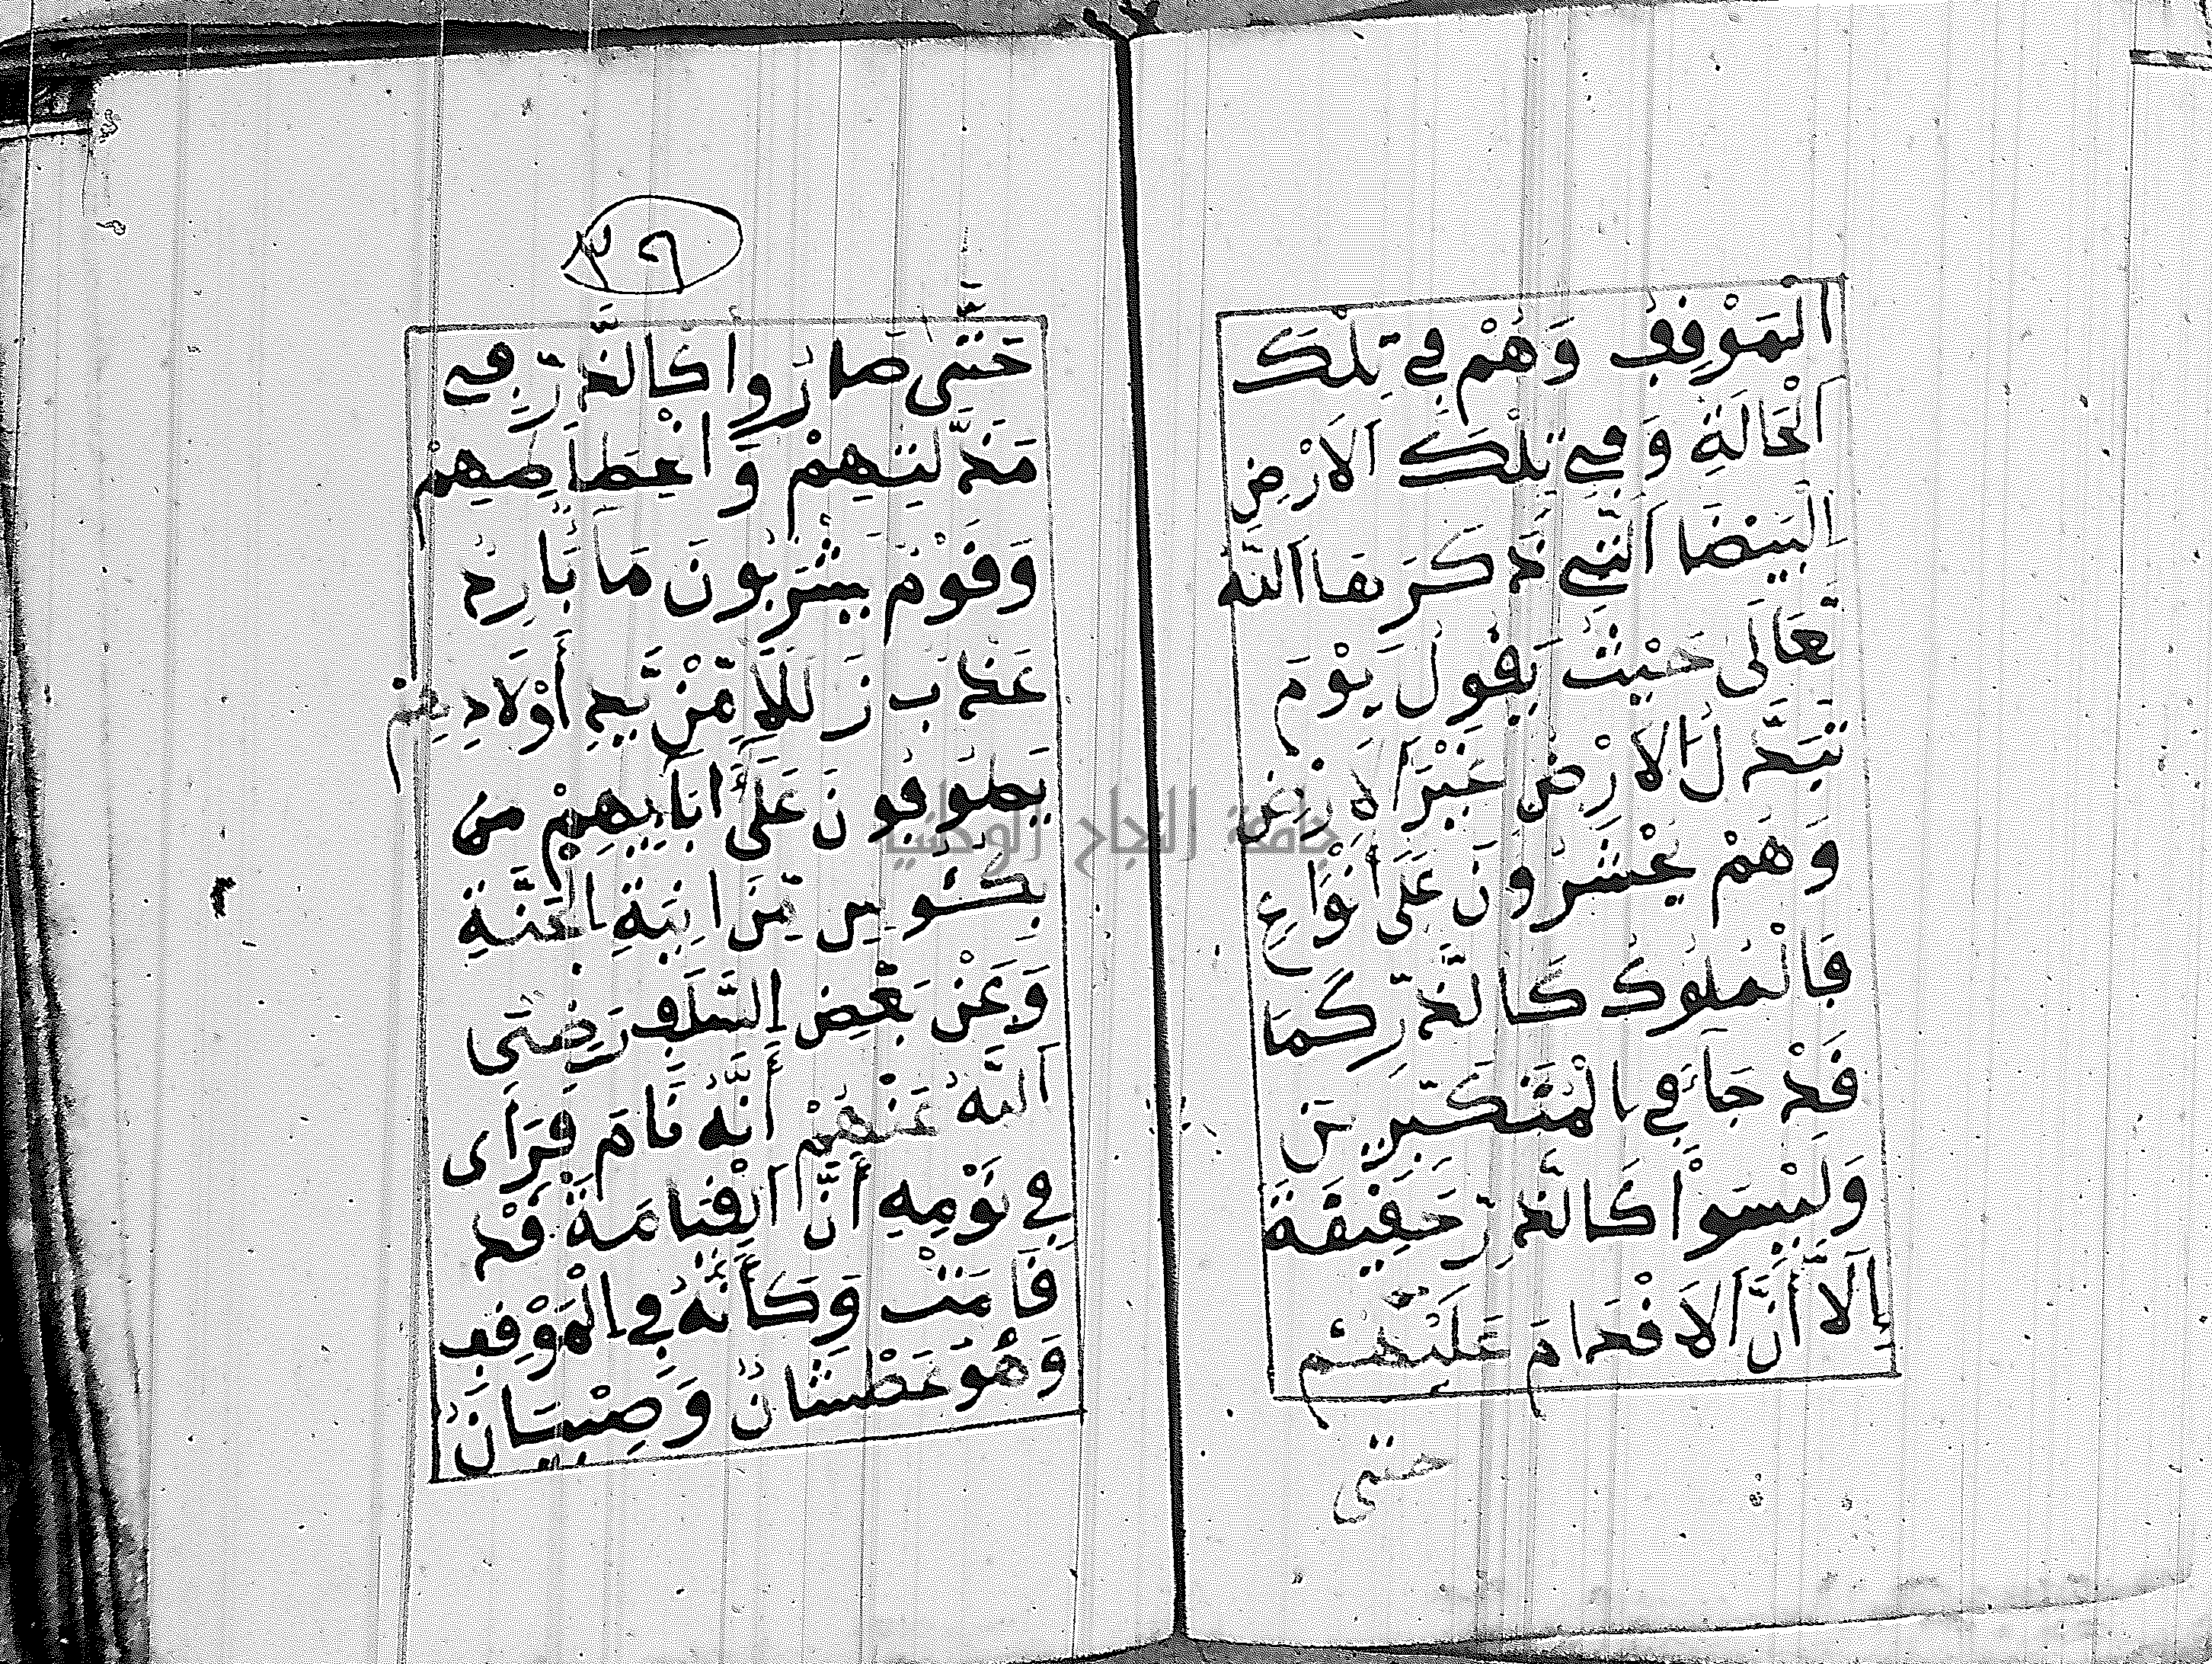 الْمَوْفِفِ وَهُمْ فِي تِلْكَ
الْحَالَةِ وَفِي تِلْكَ الَارْضِ
الْبَيْضَا الَّتِي ذَكَرَهَا اللَّه
تَعَالَى حَيْثُ يَقُولُ يَوْمَ
تُبَدَّلُ الَارْضُ غَيْرَ الَارْضِ
وَهُمْ يُحْشَرُونَ عَلَى أَنْوَاعٍ
فَالْمُلُوكُ كَالذَّرِّ كَمَا
قَدْ جَآءَ فِي الْمُتَكَبِّرِينَ
وَلَيْسَوْا كَالذَّرِّ حَقِيقَةً
إِلَّا أَنَّ الَاقْدَامَ عَلَيْهُمْ
حتى
٣٦
حَتَّى صَارُوا كَالذَّرِّ فِي
مَذَلَّتِهِمْ وَ
وَقَوْمٌ يَشْرَبُونَ مَآ بَارِدً
عَذْبَ زَلَلاً مِّنْ يَدِ أَوْلَادِهِمْ
يَطُوفُونَ عَلَى أبَآيِهِمْ مِنْ
بِكُئوسٍ مِّنَ انِيَةِ الْجَنَّةِ
وَعَنْ بَعْضِ السَّلَفِ رَضِيَ
اللَّهُ عَنْهُمْ أَنَّهُ نَامَ فَرَأَى
فِي نَوْمِهِ أَنَّ الْقِيَامَةَ قَدْ
قَامَتْ وَكَأَنَّهُ فِي الْمَوْقِفِ
وَهُوَ عَطْشَانٌ وَصِبْيَانٌ
جامعة النجاح الوطنية